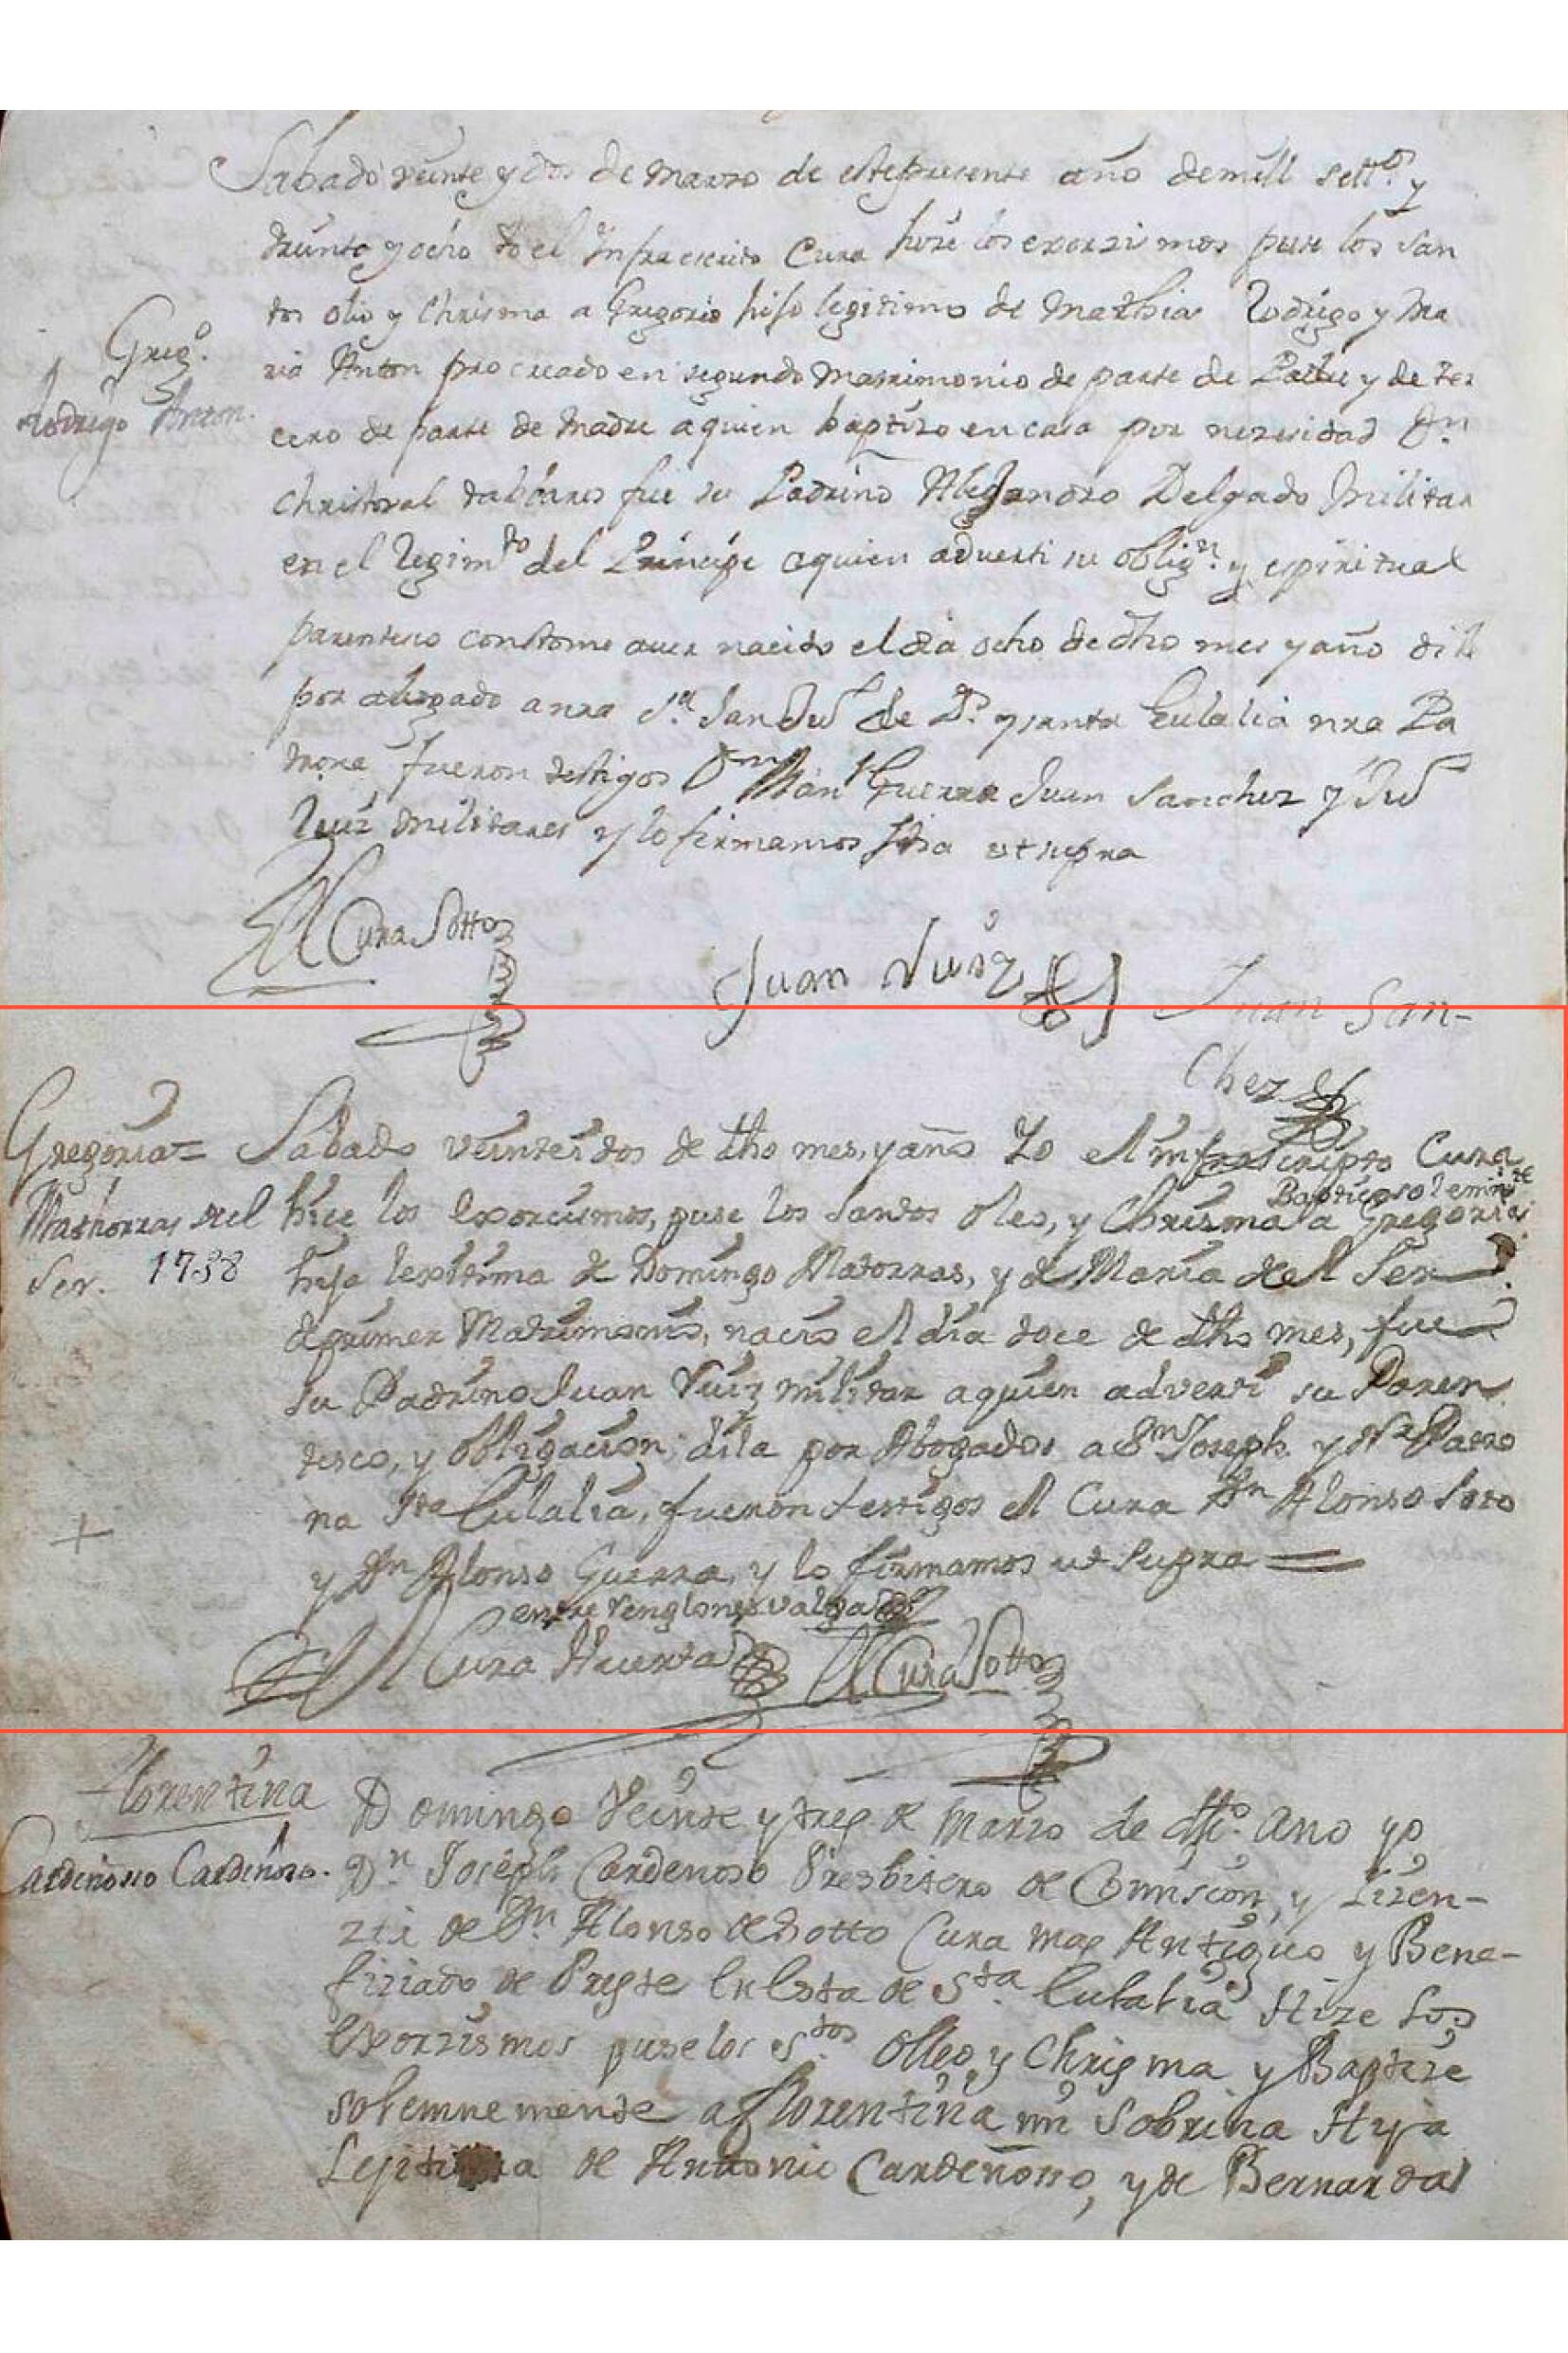 Sabado veinte y dos de Marzo de este presente año de mill sett.º y
treinta y ocho Yo el Infraescrito Cura hize los exorzismos puse los san
tos olio y Chrisma a Gregorio hijo legitimo de Mathias Rodrigo y Ma
Greg.º
Rodrigo Anton.
ria Anton procreado en segundo Matrimonio de parte de Padre y de ter
cero de parte de Madre a quien baptizo en casa por nezesidad Dn
Christoval fue su Padrino Alejandro Delgado Militar
en el Regim.to del Principe a quien adverti su oblig.n y espiritual
parentesco constome aver nacido el dia ocho de dho mes y año dile
por abogado a nra S.ra San de P.e y santa Eulalia nra Pa
trona fueron testigos Dn Guerra Juan Sanchez y
Ruiz Militares y lo firmamos fha ut supra
El Cura Sotto
Juan Ruiz
Juan San-
chez
Gregoria =
Mathorras del
Ser. 1738
Sabado veinte i dos de dho mes, y año Yo el infrascripto Cura
Baptize solemnte
hize los exorcismos, puse los Santos oleo, y Chrisma a Gregoria
hija lexitima de Domingo Matorras, y de Maria del Ser
de primer Matrimonio, nacio el dia doce de dho mes, fue
su Padrino Juan Ruiz militar a quien adverti su Paren
tesco, y obligacion; dila por Abogados a Sn Joseph y Na Patro
na Sta Eulalia, fueron testigos el Cura Dn Alonso Soto
y Dn Alonso Guerra, y lo firmamos ut supra =
entre renglones valga
El Cura Huerta
El Cura Sotto
Florentina
Cardeñosso Cardeñoso.
Domingo Veinte y tres de Marzo de dho. Ano yo
Dn Joseph Cardenoso Presbitero de Comision, y Lizen-
zia de Dn Alonso de Sotto Cura mas Antiguo y Bene-
fiziado de Preste En Esta de Sta. Eulalia Hize Los
Exorzismos puse los Stos. Olleo, y Chrisma y Baptize
solemnemente a florentina mi Sobrina Hija
Lejitima de Antonio Cardeñosso, y de Bernarda